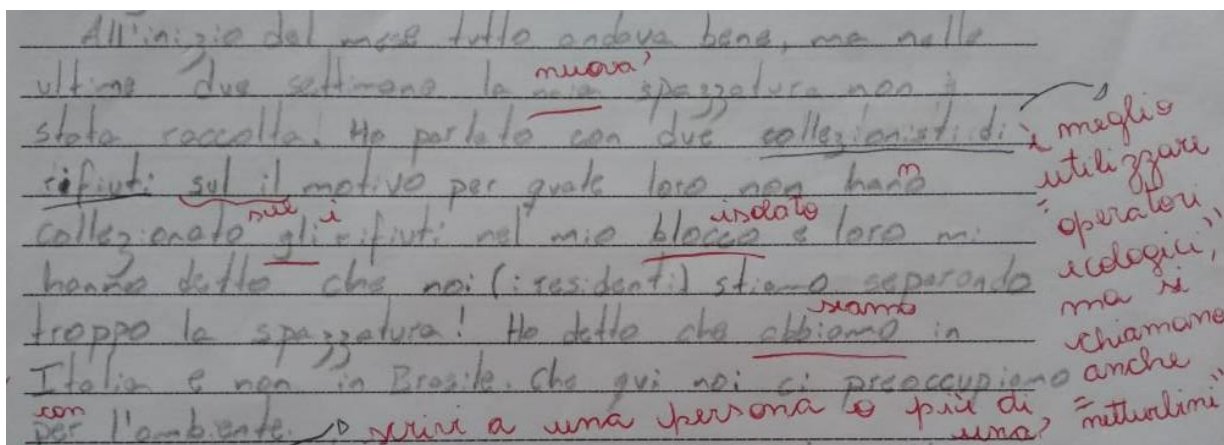 All'inizio del mese tutto andava bene, ma nelle
nuova?
ultime due settimane la mia spazzatura non è
stata raccolta. Ho parlato con due collezionisti di
rifiuti sul il motivo per quale loro non hano
n
sul i isolato
collezionato gli rifiuti nel mio blocco e loro mi
hanno detto che noi (i residenti) stiamo separando
troppo la spazzatura! Ho detto che abbiamo in
siamo
Italia e non in Brasile. Che qui noi ci preoccupiamo
con
per l'ambiente.
scrivi a una persona o più di una?
è meglio
utilizzare
"operatori
ecologici",
ma si
chiamano
anche
"netturbini"